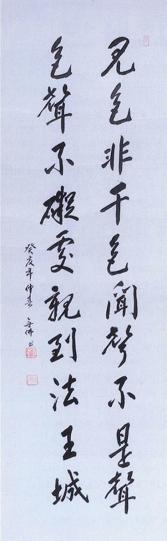 見色非干色聞聲不是聲
色聲不礙處親到法王城
癸亥年仲春